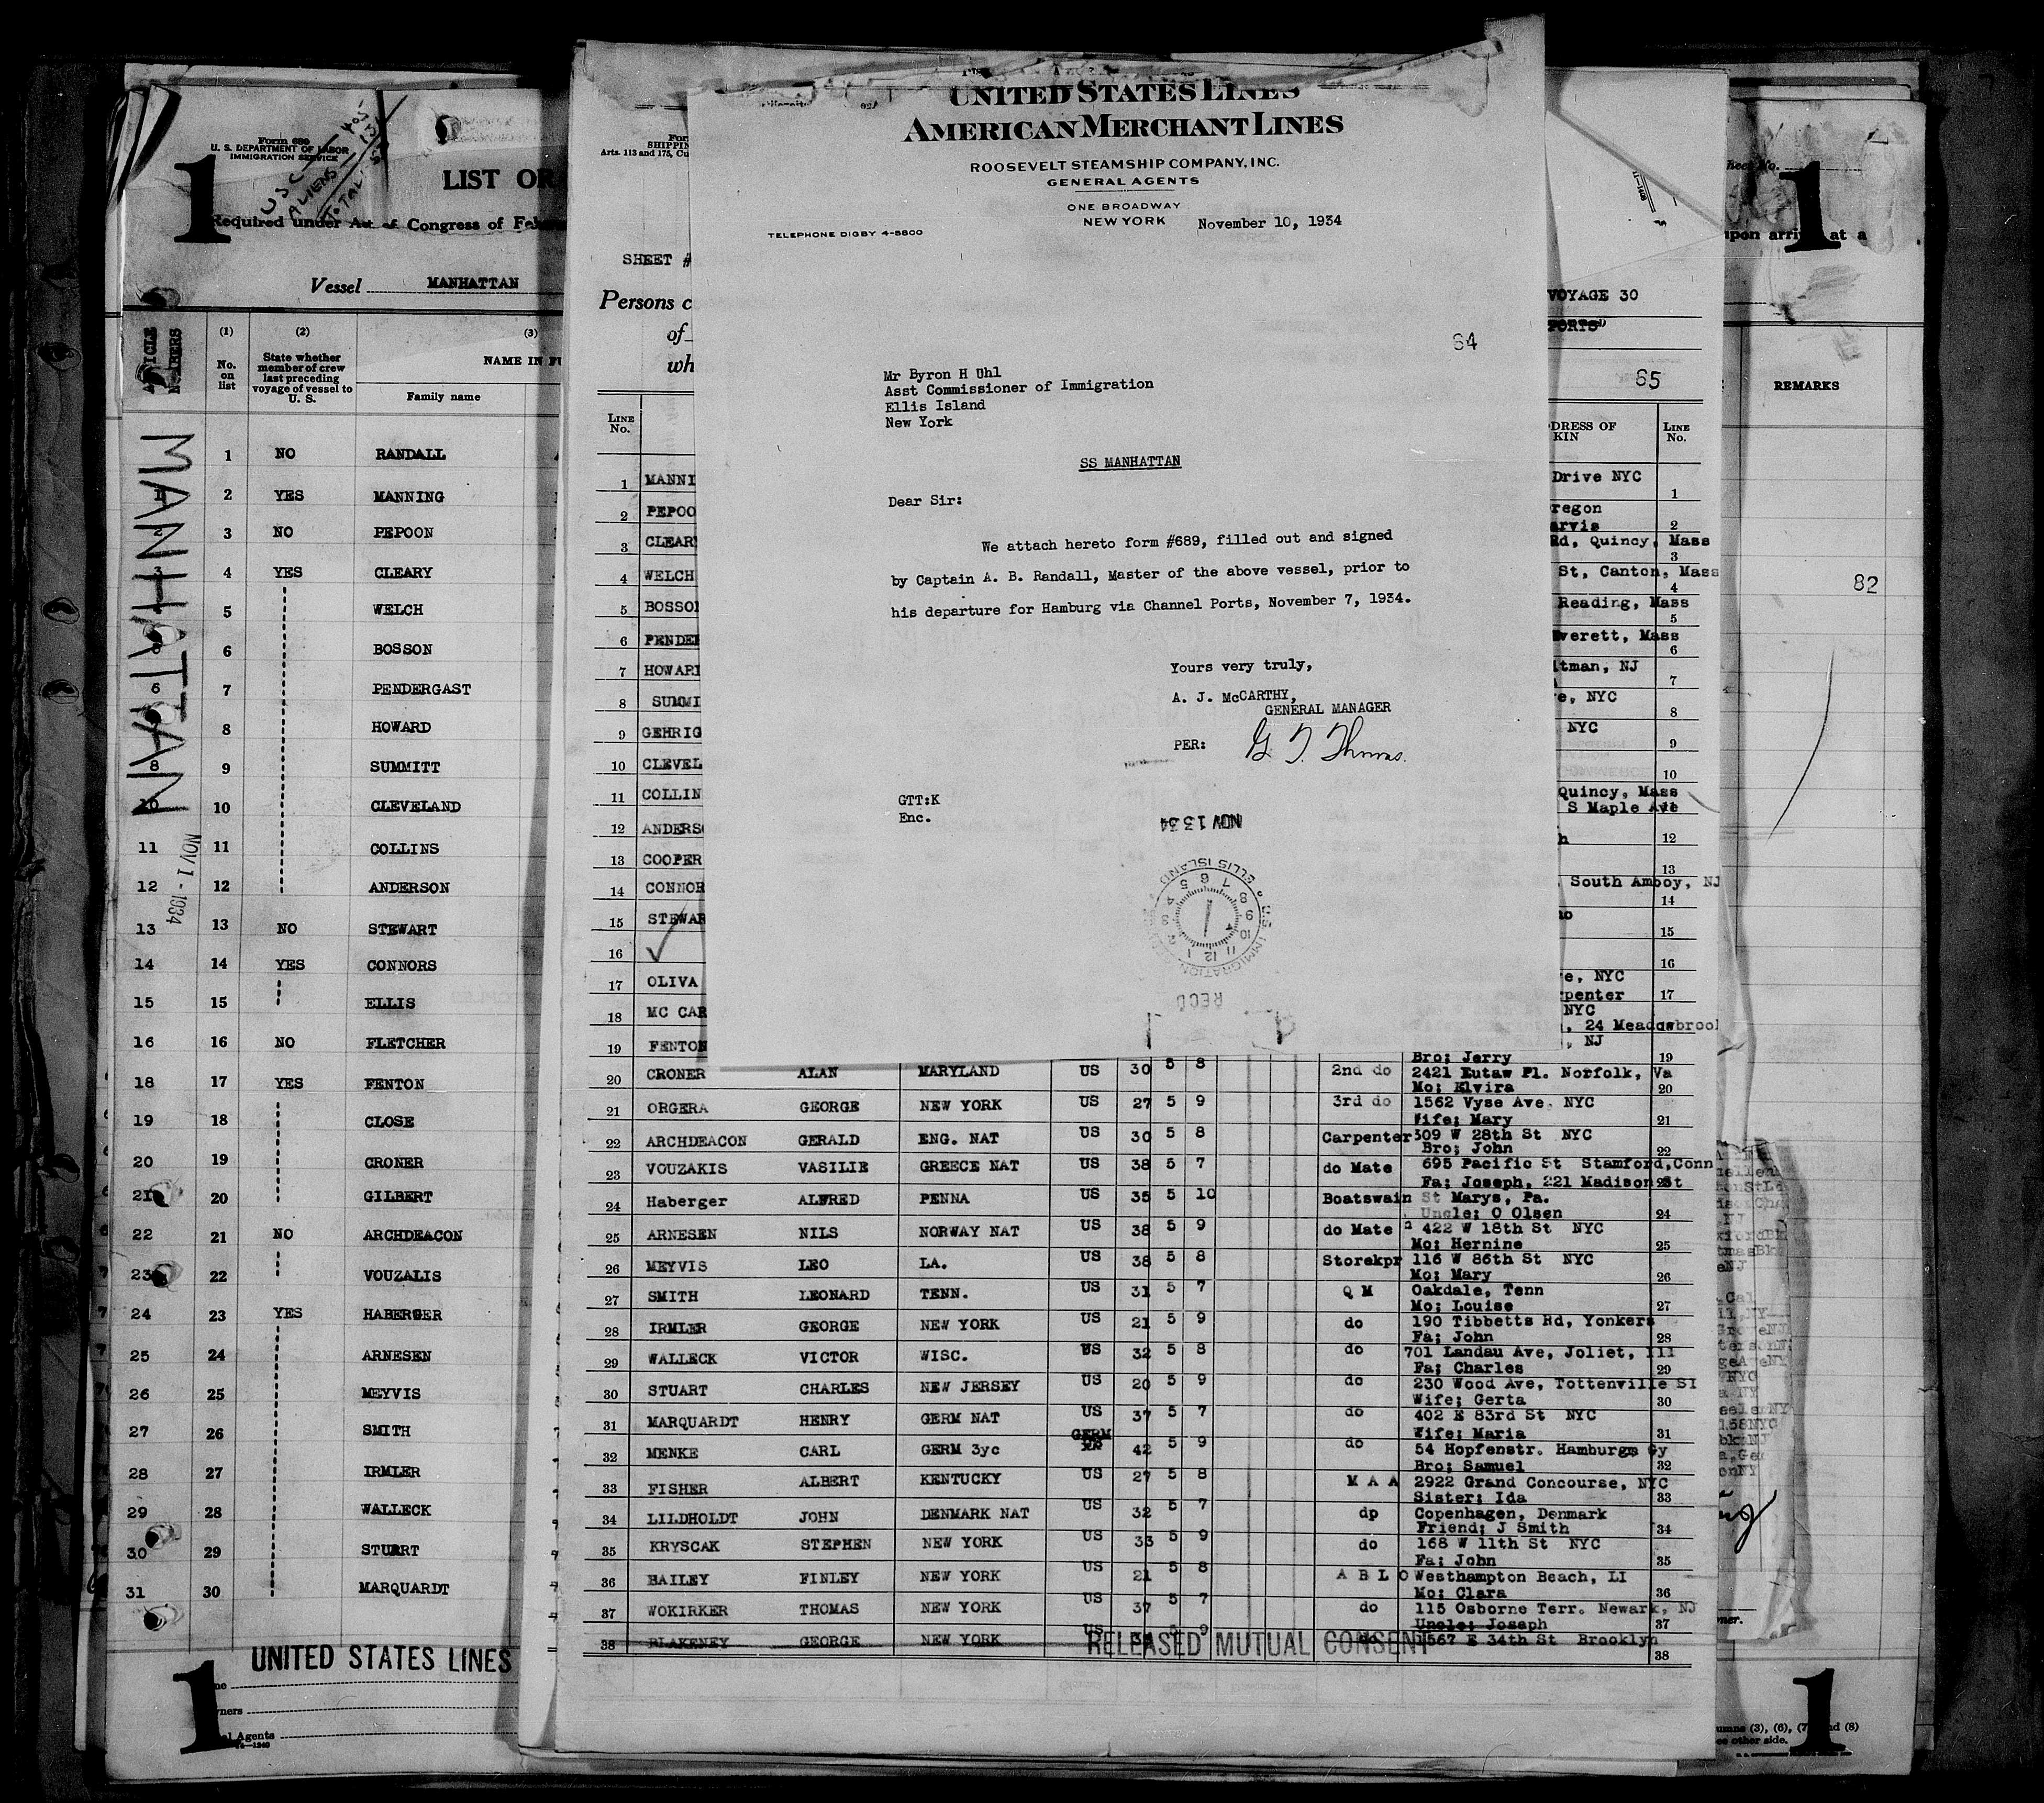 UNITED STATES LINES
AMERICAN MERCHANT LINES
ROOSEVELT STEAMSHIP COMPANY, INC.
GENERAL AGENTS
ONE BROADWAY
NEW YORK November 10, 1934
TELEPHONE DIGBY 4-5800
64
Mr Byron H Uhl
Asst Commissioner of Immigration
Ellis Island
New York
SS MANHATTAN
Dear Sir:
We attach hereto form #689, filled out and signed
by Captain A. B. Randall, Master of the above vessel, prior to
his departure for Hamburg via Channel Ports, November 7, 1934.
Yours very truly,
A. J. McCARTHY,
GENERAL MANAGER
PER: G. T. Thomas.
GTT:K
Enc.
NOV 13 34
U.S. IMMIGRATION
ELLIS ISLAND
RECD
Form 689
U. S. DEPARTMENT OF LABOR
IMMIGRATION SERVICE
1
USC
ALIENS
TOTAL
LIST OR
Required under Act of Congress of Feb
Vessel MANHATTAN
(1) (2) (3)
No. on list
State whether member of crew last preceding voyage of vessel to U. S.
NAME IN
Family name
MANHATTAN
NOV 1 - 1934
1 NO RANDALL
1 2 YES MANNING
2 3 NO PEPOON
3 4 YES CLEARY
5 WELCH
6 BOSSON
6 7 PENDERGAST
8 HOWARD
8 9 SUMMITT
10 10 CLEVELAND
11 11 COLLINS
12 12 ANDERSON
13 13 NO STEWART
14 14 YES CONNORS
15 15 ELLIS
16 16 NO FLETCHER
18 17 YES FENTON
19 18 CLOSE
20 19 CRONER
21 20 GILBERT
22 21 NO ARCHDEACON
23 22 VOUZALIS
24 23 YES HABERGER
25 24 ARNESEN
26 25 MEYVIS
27 26 SMITH
28 27 IRMLER
29 28 WALLECK
30 29 STUART
31 30 MARQUARDT
1
UNITED STATES LINES
Agents
SHIPPIN
Arts. 113 and 175, Cu
SHEET #
Persons c
of
wh
VOYAGE 30
PORTS
65
LINE No.
DRESS OF
KIN
LINE No.
1 MANNI Drive NYC 1
2 PEPOO regon 2
arvis
3 CLEAR Rd, Quincy, Mass 3
4 WELCH St, Canton, Mass 4
5 BOSSO Reading, Mass 5
6 PENDE verett, Mass 6
7 HOWAR itman, NJ 7
8 SUMMI e, NYC 8
9 GEHRIG NYC 9
10 CLEVEL 10
11 COLLIN Quincy, Mass
S Maple Ave
12 ANDERS 12
13 COOPER 13
14 CONNOR South Amboy, NJ 14
15 STEWAR 15
16 16
17 OLIVA e, NYC 17
rpenter
18 MC CAR NYC
, 24 Meadowbrook
19 FENTON , NJ 19
Bro; Jerry
20 CRONER ALAN MARYLAND US 30 5 8 2nd do 2421 Eutaw Pl. Norfolk, Va 20
Mo; Elvira
21 ORGERA GEORGE NEW YORK US 27 5 9 3rd do 1562 Vyse Ave. NYC 21
Wife; Mary
22 ARCHDEACON GERALD ENG. NAT US 30 5 8 Carpenter 309 W 28th St NYC 22
Bro; John
23 VOUZAKIS VASILIE GREECE NAT US 38 5 7 do Mate 695 Pacific St Stamford,Conn 23
Fa; Joseph, 221 Madison St
24 Haberger ALFRED PENNA US 35 5 10 Boatswain St Marys, Pa. 24
Uncle; O Olsen
25 ARNESEN NILS NORWAY NAT US 38 5 9 do Mate 422 W 18th St NYC 25
Mo; Hernine
26 MEYVIS LEO LA. US 38 5 8 Storekpr 116 W 86th St NYC 26
Mo; Mary
27 SMITH LEONARD TENN. US 31 5 7 Q M Oakdale, Tenn 27
Mo; Louise
28 IRMLER GEORGE NEW YORK US 21 5 9 do 190 Tibbetts Rd, Yonkers 28
Fa; John
29 WALLECK VICTOR WISC. US 32 5 8 do 701 Landau Ave, Joliet, Ill 29
Fa; Charles
30 STUART CHARLES NEW JERSEY US 20 5 9 do 230 Wood Ave, Tottenville SI 30
Wife; Gerta
31 MARQUARDT HENRY GERM NAT US 37 5 7 do 402 E 83rd St NYC 31
Wife; Maria
32 MENKE CARL GERM 3yc GERM 42 5 9 do 54 Hopfenstr. Hamburg Gy 32
Bro; Samuel
33 FISHER ALBERT KENTUCKY US 27 5 8 M A A 2922 Grand Concourse, NYC 33
Sister; Ida
34 LILDHOLDT JOHN DENMARK NAT US 32 5 7 dp Copenhagen, Denmark 34
Friend; J Smith
35 KRYSCAK STEPHEN NEW YORK US 33 5 9 do 168 W 11th St NYC 35
Fa; John
36 BAILEY FINLEY NEW YORK US 21 5 8 A B L O Westhampton Beach, LI 36
Mo; Clara
37 WOKIRKER THOMAS NEW YORK US 37 5 7 do 115 Osborne Terr. Newark, NJ 37
Uncle; Joseph
38 BLAKENEY GEORGE NEW YORK US 5 9 1567 E 34th St Brooklyn 38
RELEASED MUTUAL CONSENT
Sheet No.
1
upon arri at a
REMARKS
82
umns (3), (6), (7) and (8)
see other side.
1